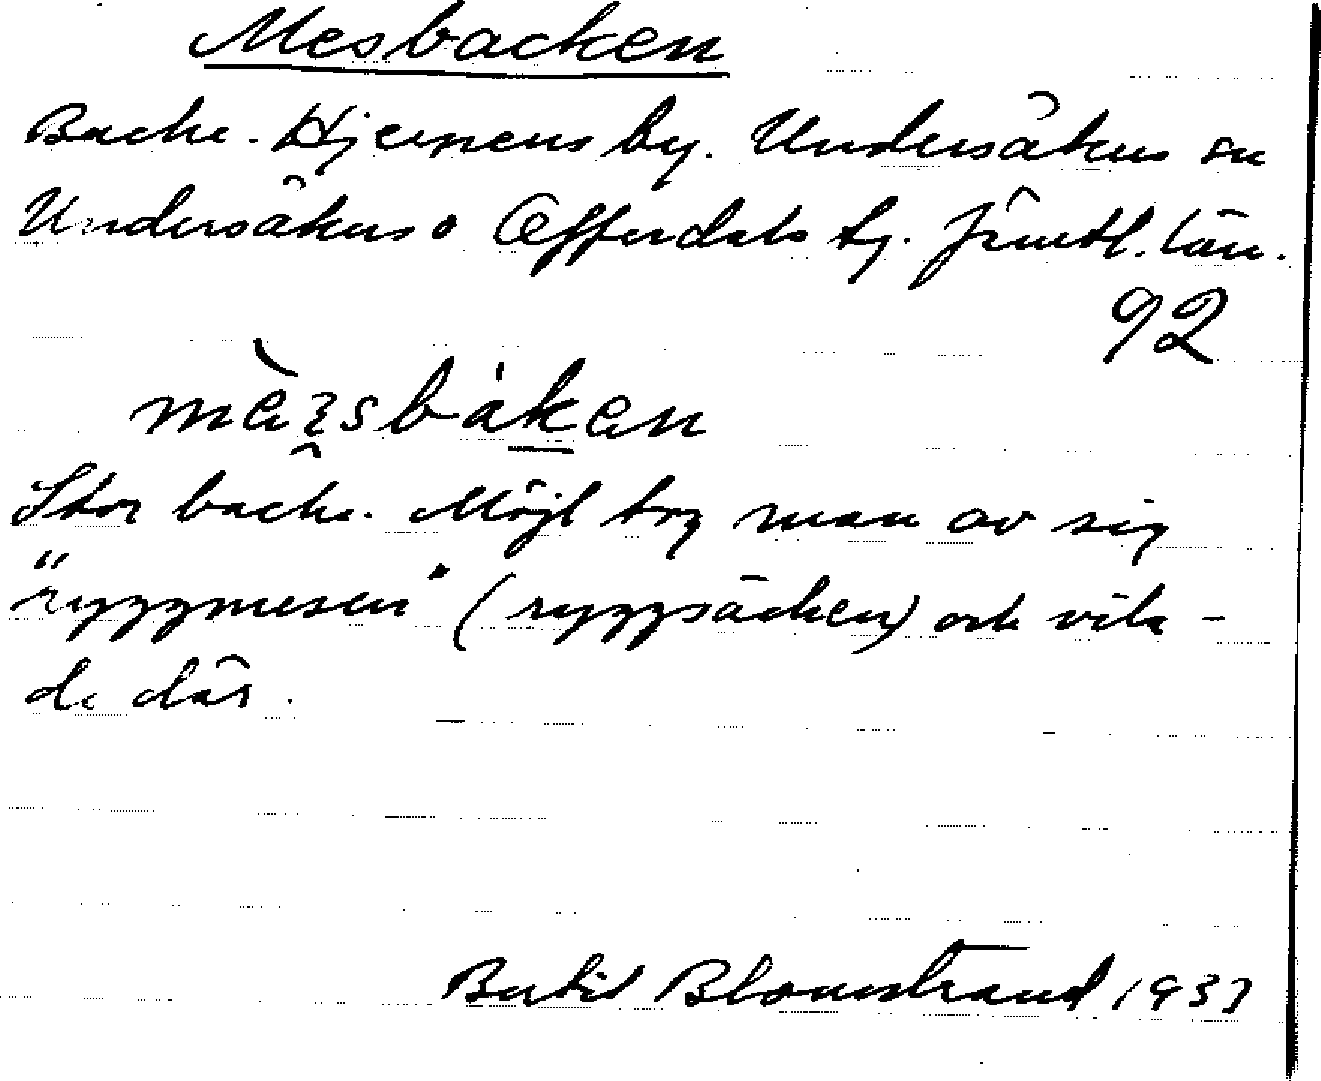 Mesbacken
Backe. Hjerpens by. Undersåkers sn
Undersåkers o Offerdals tg. Jämtl. län.
92
mèsbáken
Stor backe. Möjl tog man av sig
"ryggmesen" (ryggsäcken) och vila-
de där.
Bertil Blomstrand 1937